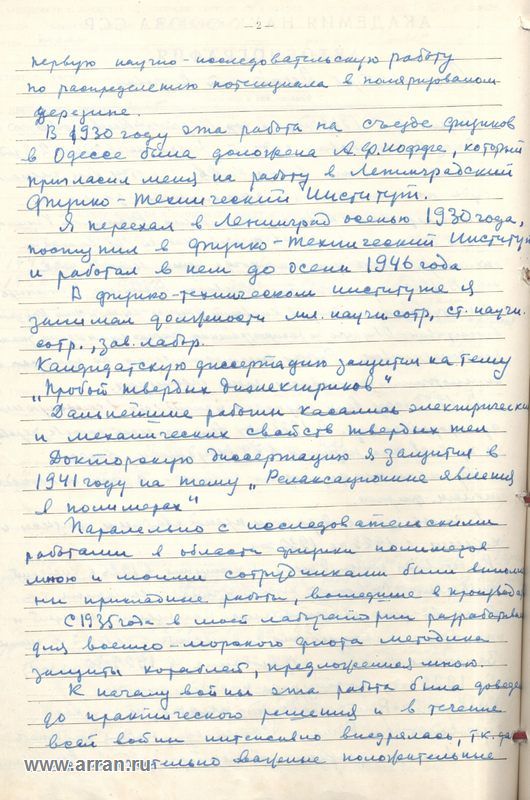 - 2 -
первую научно-исследовательскую работу
по распределению потенциала в поляризованом
церезине.
В 1930 году эта работа на съезде физиков
в Одессе была доложена А.Ф.Иоффе, который
пригласил меня на работу в Ленинградский
Физико-Технический Институт.
Я переехал в Ленинград осенью 1930 года,
поступил в Физико-Технический Институт
и работал в нем до осени 1946 года
В физико-техническом институте я
занимал должности мл. научн. сотр., ст. научн.
сотр., зав. лабор.
Кандидатскую диссертацию защитил на тему
„Пробой твердых диэлектриков"
Дальнейшие работы касались электрически
и механических свойств твердых тел
Докторскую диссертацию я защитил в
1941 году на тему „Релаксационные явления
в полимерах"
Паралельно с исследовательскими
работами в области физики полимеров
мною и моими сотрудниками были выполне
ны прикладные работы, вошедшие в производс
С 1935 года в моей лаборатории разрабатыва
для военно-морского флота методика
защиты кораблей, предложенная мною.
К началу войны эта работа была доведе
до практического решения и в течение
всей войны интенсивно внедрялась, т.к. да
важные положительные
www.arran.ru